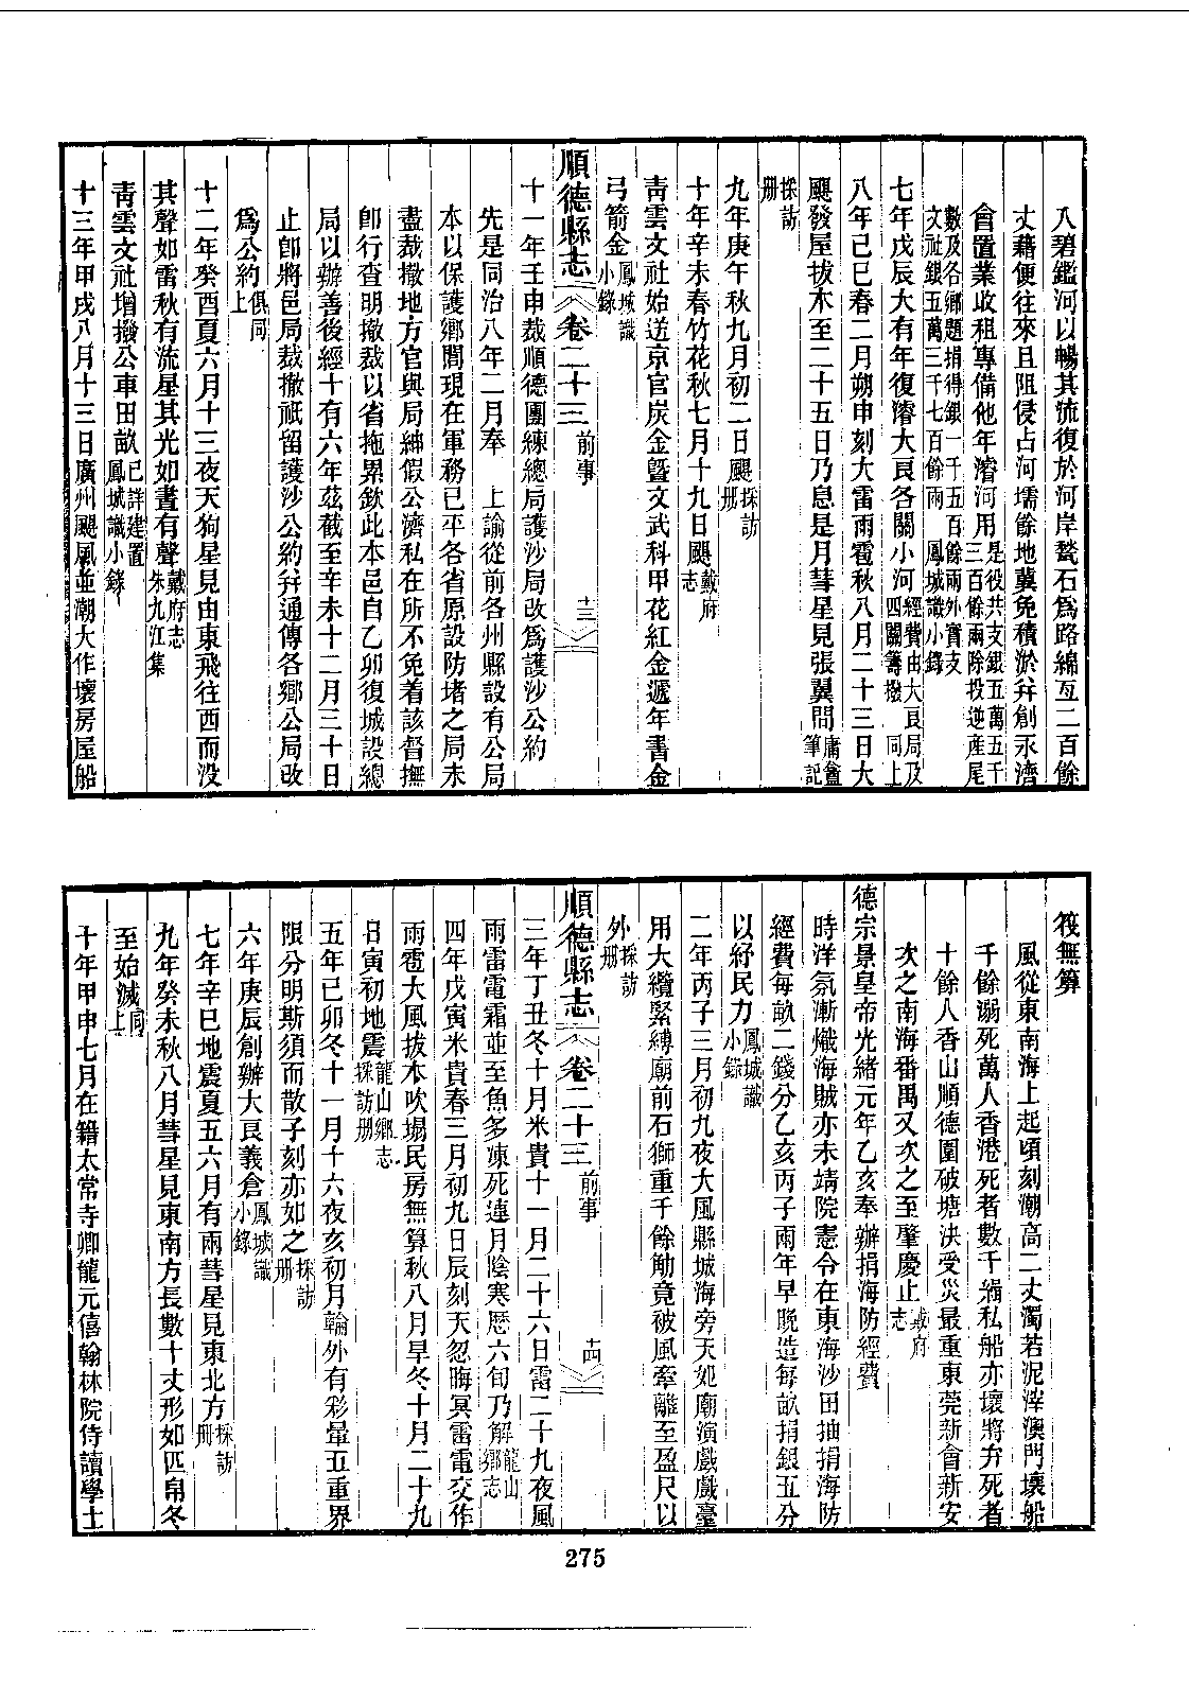 入碧鑑河以暢其流復於河岸甃石爲路綿亙二百餘
丈藉便往來且阻侵占河壖餘地冀免積淤幷創永濟
會置業收租專備他年濬河用是役共支銀五萬五千三百餘兩除投逆產尾
數及各鄉題捐得銀一千五百餘兩外實支文社銀五萬三千七百餘兩 鳳城識小錄
七年戊辰大有年復濬大良各關小河經費由大良局及四關籌撥 同上
八年己巳春二月朔申刻大雷雨雹秋八月二十三日大
颶發屋拔木至二十五日乃息是月彗星見張翼間庸盦筆記
採訪册
九年庚午秋九月初二日颶採訪册
十年辛未春竹花秋七月十九日颶戴府志
靑雲文社始送京官炭金曁文武科甲花紅金遞年書金
弓箭金鳳城識小錄
順德縣志 卷二十三 前事 十三
十一年壬申裁順德團練總局護沙局改爲護沙公約
先是同治八年二月奉 上諭從前各州縣設有公局
本以保護鄉閭現在軍務已平各省原設防堵之局未
盡裁撤地方官與局紳假公濟私在所不免着該督撫
卽行查明撤裁以省拖累欽此本邑自乙卯復城設總
局以辦善後經十有六年茲截至辛未十二月三十日
止卽將邑局裁撤祇留護沙公約幷通傳各鄉公局改
爲公約俱同上
十二年癸酉夏六月十三夜天狗星見由東飛往西而没
其聲如雷秋有流星其光如晝有聲戴府志朱九江集
靑雲文社增撥公車田畝已詳建置鳳城識小錄
十三年甲戌八月十三日廣州颶風並潮大作壞房屋船
筏無算
風從東南海上起頃刻潮高二丈濁若泥滓澳門壞船
千餘溺死萬人香港死者數千緝私船亦壞將弁死者
十餘人香山順德圍破塘決受災最重東莞新會新安
次之南海番禺又次之至肇慶止戴府志
德宗景皇帝光緒元年乙亥奉辦捐海防經費
時洋氛漸熾海賊亦未靖院憲令在東海沙田抽捐海防
經費每畝二錢分乙亥丙子兩年早晚造每畝捐銀五分
以紓民力鳳城識小錄
二年丙子三月初九夜大風縣城海旁天妃廟演戲戲臺
用大纜緊縛廟前石獅重千餘觔竟被風牽離至盈尺以
外採訪册
順德縣志 卷二十三 前事 十四
三年丁丑冬十月米貴十一月二十六日雷二十九夜風
雨雷電霜並至魚多凍死連月陰寒歷六旬乃解龍山鄉志
四年戊寅米貴春三月初九日辰刻天忽晦冥雷電交作
雨雹大風拔木吹塌民房無算秋八月旱冬十月二十九
日寅初地震龍山鄉志採訪册
五年己卯冬十一月十六夜亥初月輪外有彩暈五重界
限分明斯須而散子刻亦如之採訪册
六年庚辰創辦大良義倉鳳城識小錄
七年辛巳地震夏五六月有兩彗星見東北方採訪册
九年癸未秋八月彗星見東南方長數十丈形如匹帛冬
至始滅同上
十年甲申七月在籍太常寺卿龍元僖翰林院侍讀學士
275